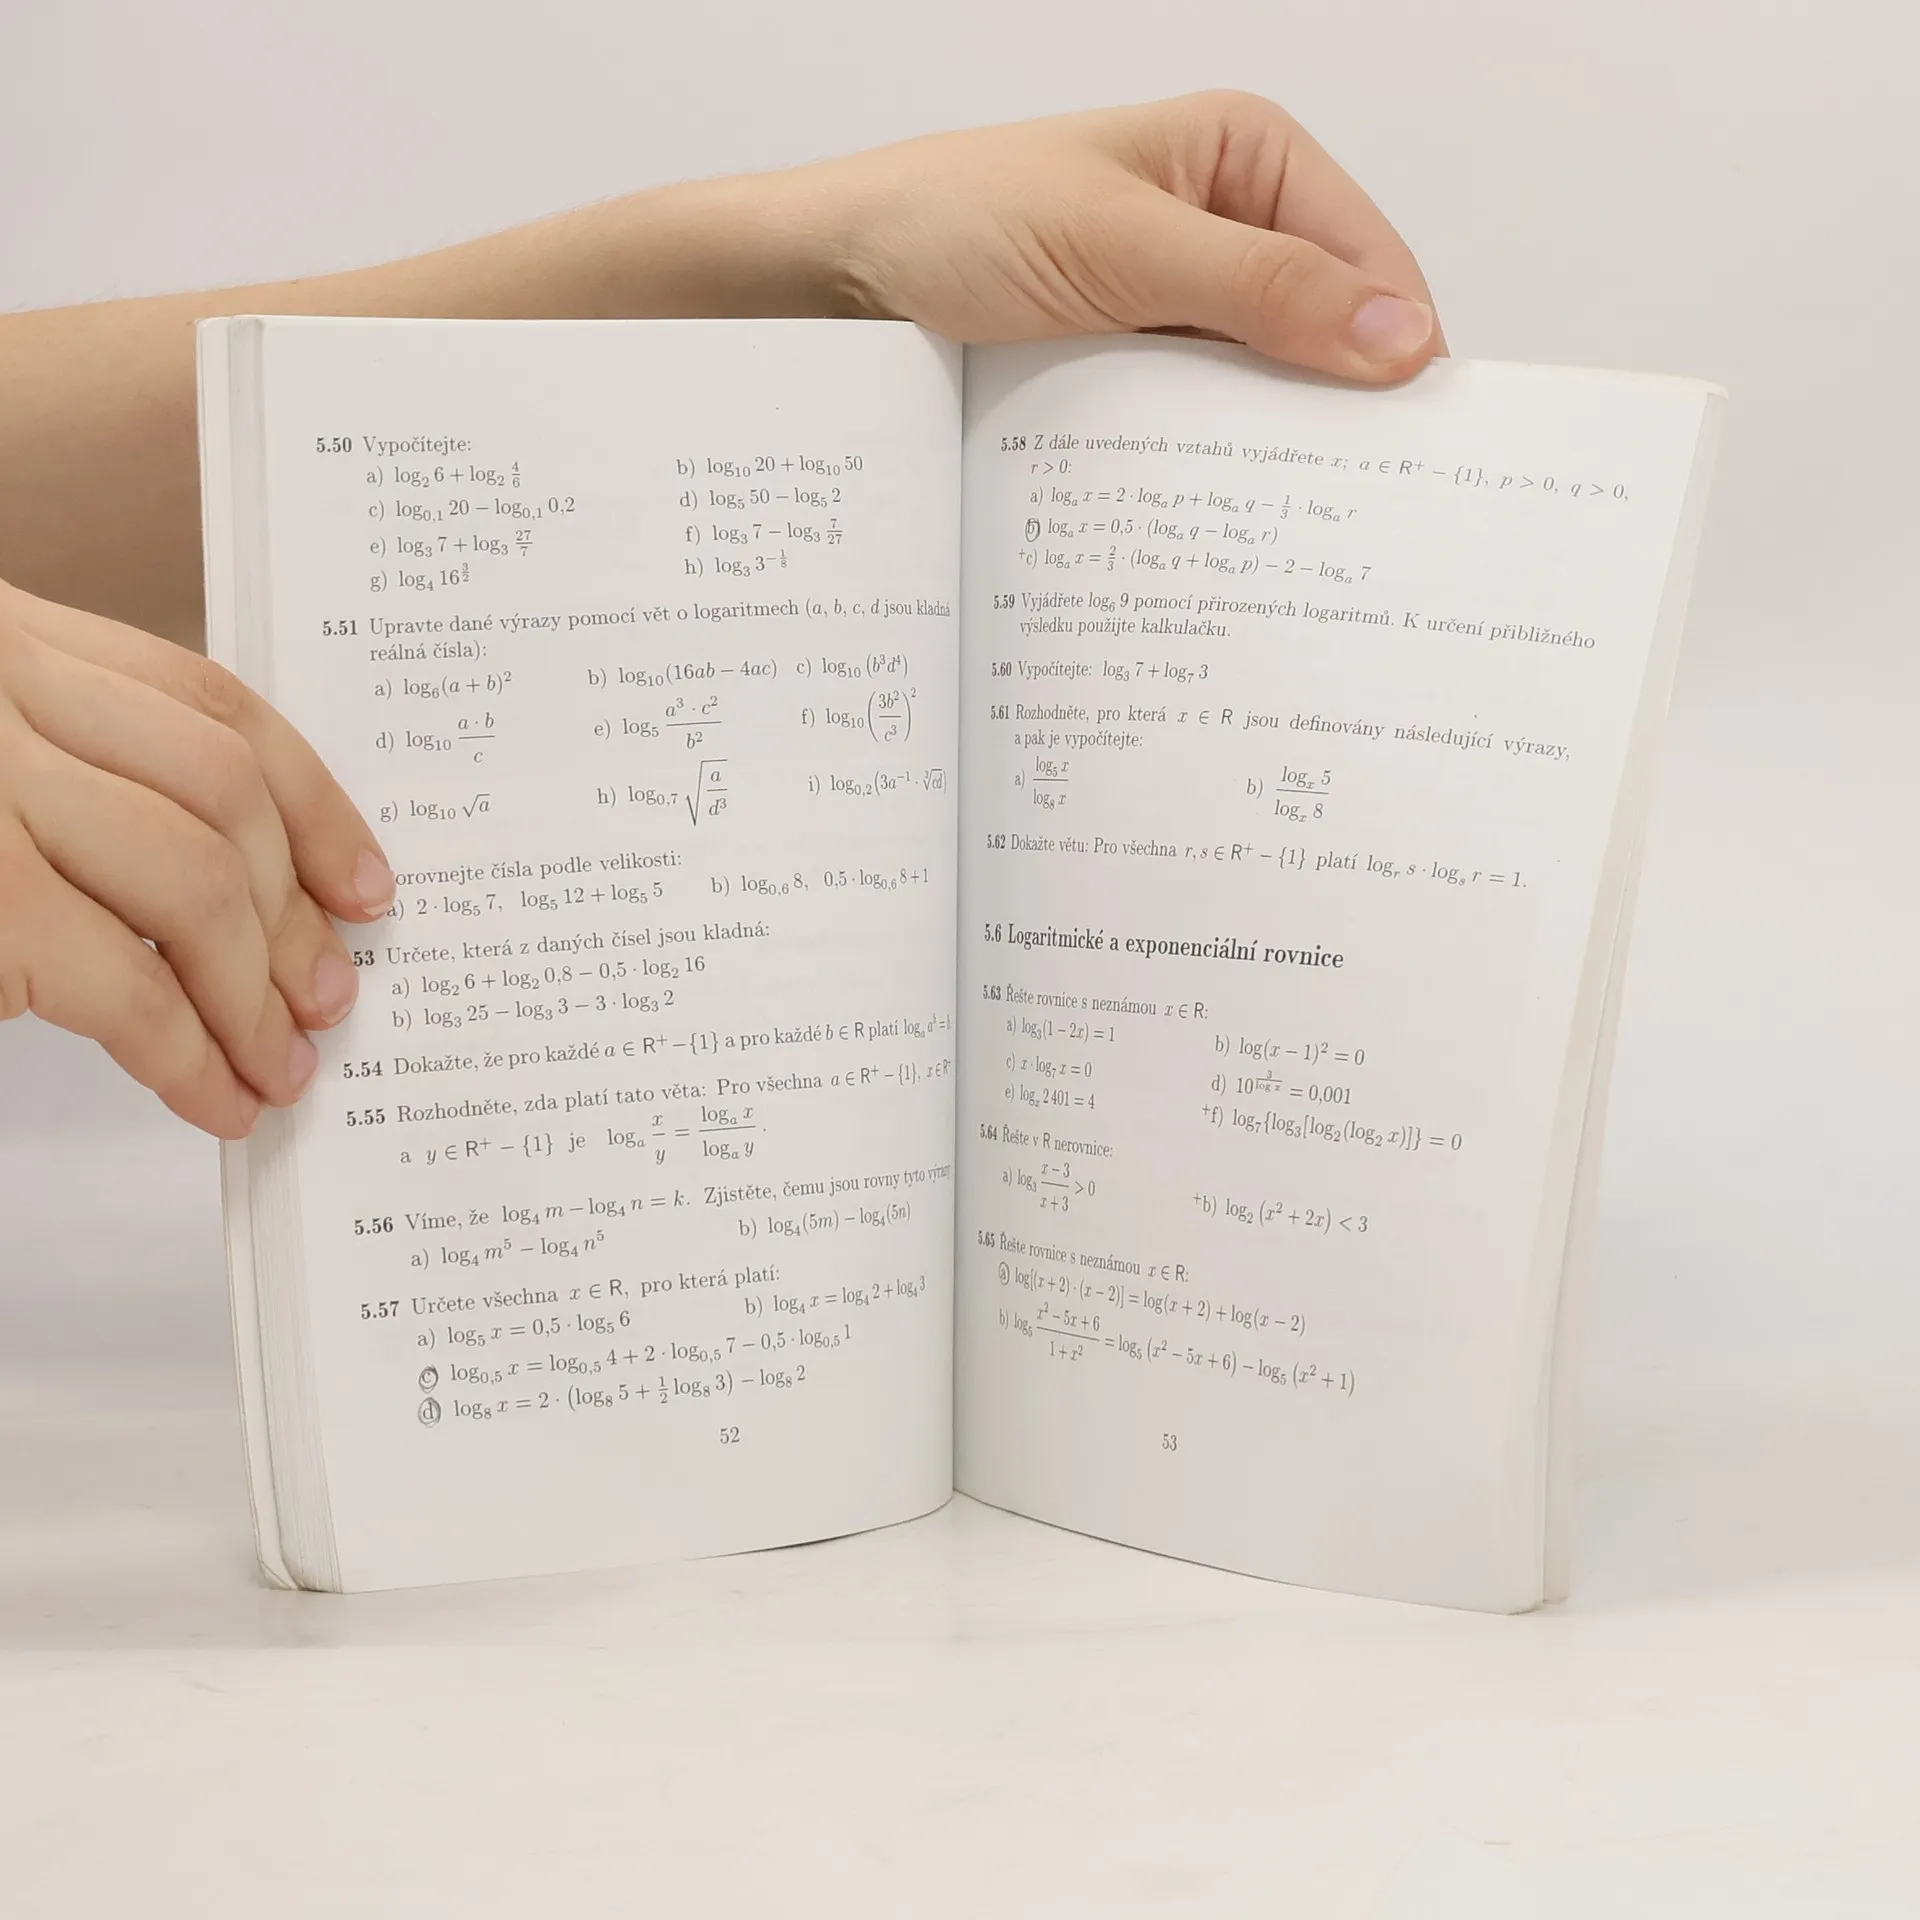 5.50 Vypočítejte:
a) log₂ 6 + log₂ 4/6 b) log₁₀ 20 + log₁₀ 50
c) log₀,₁ 20 − log₀,₁ 0,2 d) log₅ 50 − log₅ 2
e) log₃ 7 + log₃ 27/7 f) log₃ 7 − log₃ 7/27
g) log₄ 16^(3/2) h) log₃ 3^(−1/8)
5.51 Upravte dané výrazy pomocí vět o logaritmech (a, b, c, d jsou kladná
reálná čísla):
a) log₆(a + b)² b) log₁₀(16ab − 4ac) c) log₁₀ (b³d⁴)
d) log₁₀ (a · b)/c e) log₅ (a³ · c²)/b² f) log₁₀ (3b²/c³)²
g) log₁₀ √a h) log₀,₇ √(a/d³) i) log₀,₂(3a⁻¹ · ∛(cd))
orovnejte čísla podle velikosti:
a) 2 · log₅ 7, log₅ 12 + log₅ 5 b) log₀,₆ 8, 0,5 · log₀,₆ 8 + 1
53 Určete, která z daných čísel jsou kladná:
a) log₂ 6 + log₂ 0,8 − 0,5 · log₂ 16
b) log₃ 25 − log₃ 3 − 3 · log₃ 2
5.54 Dokažte, že pro každé a ∈ R⁺ − {1} a pro každé b ∈ R platí logₐ aᵇ = b
5.55 Rozhodněte, zda platí tato věta: Pro všechna a ∈ R⁺ − {1}, x ∈ R⁺
a y ∈ R⁺ − {1} je logₐ x/y = (logₐ x)/(logₐ y).
5.56 Víme, že log₄ m − log₄ n = k. Zjistěte, čemu jsou rovny tyto výrazy
a) log₄ m⁵ − log₄ n⁵ b) log₄(5m) − log₄(5n)
5.57 Určete všechna x ∈ R, pro která platí:
a) log₅ x = 0,5 · log₅ 6 b) log₄ x = log₄ 2 + log₄ 3
c) log₀,₅ x = log₀,₅ 4 + 2 · log₀,₅ 7 − 0,5 · log₀,₅ 1
d) log₈ x = 2 · (log₈ 5 + ½ log₈ 3) − log₈ 2
52
5.58 Z dále uvedených vztahů vyjádřete x; a ∈ R⁺ − {1}, p > 0, q > 0,
r > 0:
a) logₐ x = 2 · logₐ p + logₐ q − ⅓ · logₐ r
b) logₐ x = 0,5 · (logₐ q − logₐ r)
⁺c) logₐ x = ⅔ · (logₐ q + logₐ p) − 2 − logₐ 7
5.59 Vyjádřete log₆ 9 pomocí přirozených logaritmů. K určení přibližného
výsledku použijte kalkulačku.
5.60 Vypočítejte: log₃ 7 + log₇ 3
5.61 Rozhodněte, pro která x ∈ R jsou definovány následující výrazy,
a pak je vypočítejte:
a) (log₅ x)/(log₈ x) b) (logₓ 5)/(logₓ 8)
5.62 Dokažte větu: Pro všechna r, s ∈ R⁺ − {1} platí logᵣ s · logₛ r = 1.
5.6 Logaritmické a exponenciální rovnice
5.63 Řešte rovnice s neznámou x ∈ R:
a) log₃(1 − 2x) = 1 b) log(x − 1)² = 0
c) x · log₇ x = 0 d) 10^(3/log x) = 0,001
e) logₓ 2 401 = 4 ⁺f) log₇{log₃[log₂(log₂ x)]} = 0
5.64 Řešte v R nerovnice:
a) log₃ (x − 3)/(x + 3) > 0 ⁺b) log₂ (x² + 2x) < 3
5.65 Řešte rovnice s neznámou x ∈ R:
a) log[(x + 2) · (x − 2)] = log(x + 2) + log(x − 2)
b) log₅ (x² − 5x + 6)/(1 + x²) = log₅ (x² − 5x + 6) − log₅ (x² + 1)
53